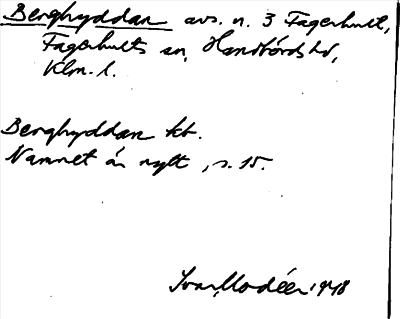 Berghyddan avs. n. 3 Fagerhult,
Fagerhults sn, Handbörds hd,
Klm. l.
Berghyddan kt.
Namnet är nytt, s. 15.
Ivar Modéer 1948